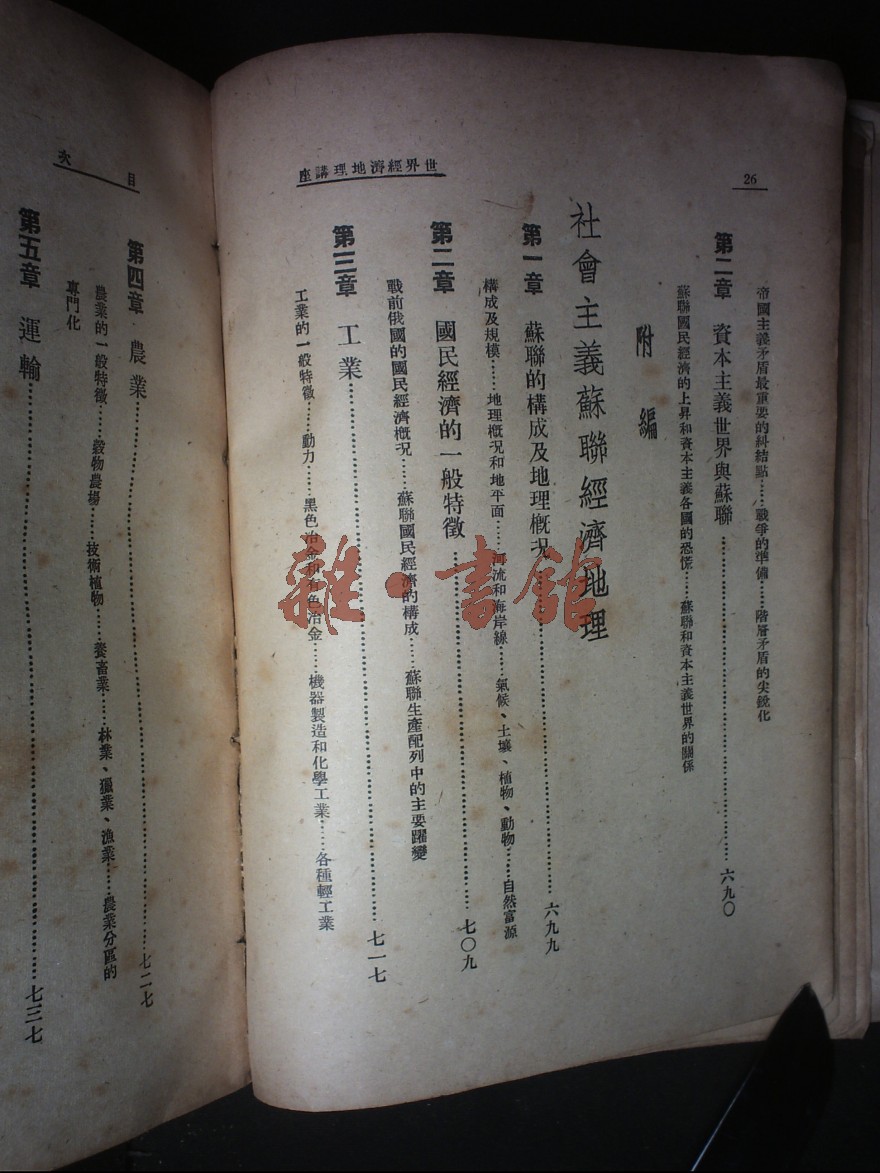 26
世界經濟地理講座
帝國主義矛盾最重要的糾結點……戰爭的準備……階層矛盾的尖銳化
第二章 資本主義世界與蘇聯……六九〇
蘇聯國民經濟的上昇和資本主義各國的恐慌……蘇聯和資本主義世界的關係
附編
社會主義蘇聯經濟地理
第一章 蘇聯的構成及地理概況……六九九
構成及規模……地理概況和地平面……河流和海岸線……氣候、土壤、植物、動物……自然富源
第二章 國民經濟的一般特徵……七〇九
戰前俄國的國民經濟概況……蘇聯國民經濟的構成……蘇聯生產配列中的主要躍變
第三章 工業……七一七
工業的一般特徵……動力……黑色冶金和有色冶金……機器製造和化學工業……各種輕工業
目次
第四章 農業……七二七
農業的一般特徵……穀物農場……技術植物……養畜業……林業、獵業、漁業……農業分區的
專門化
第五章 運輸……七三七
雜·書館